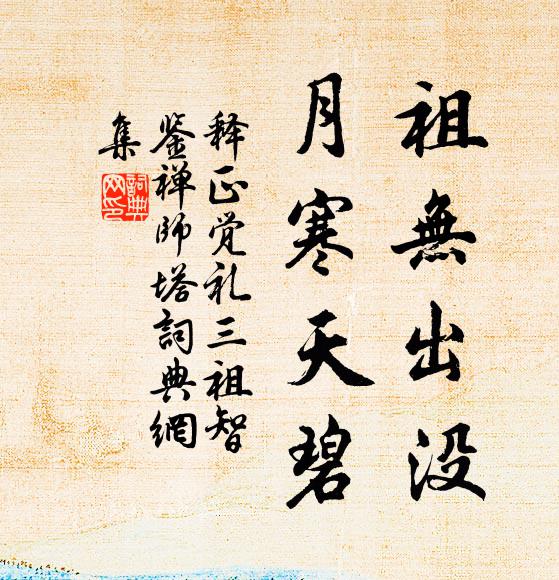 祖無出没
月寒天碧
释正觉礼三祖智
鉴禅師塔詞典網
集
詞典
网印